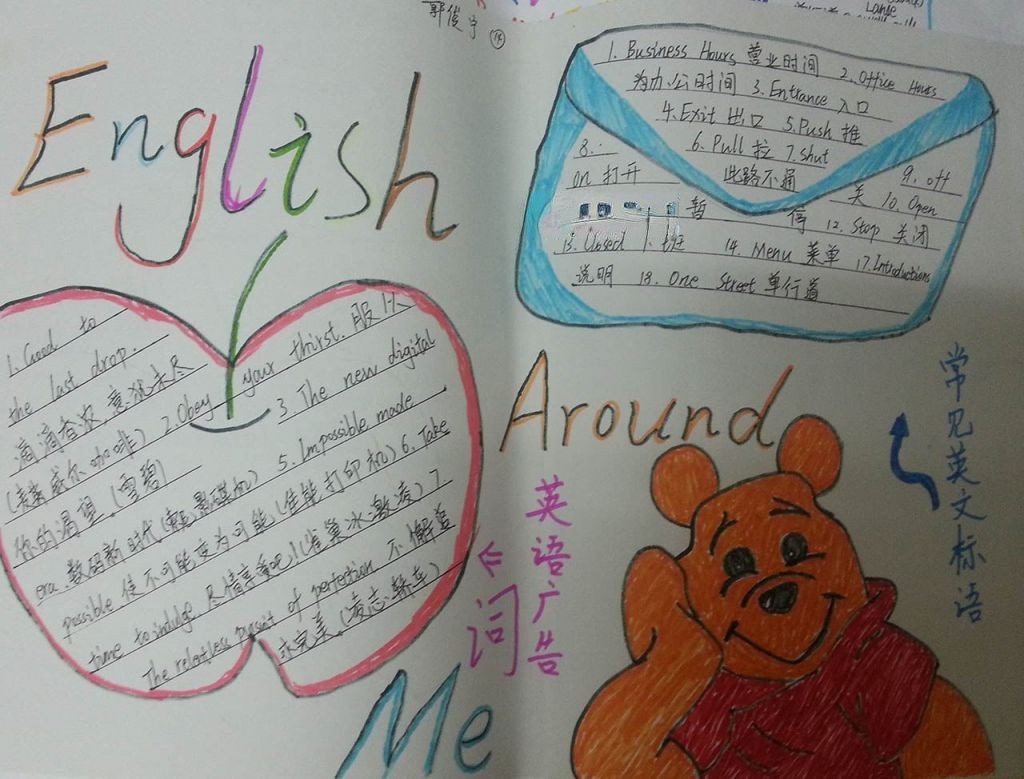 郭俊宇 14
English
1. Business Hours 营业时间 2. Office Hours
为办公时间 3. Entrance 入口
4. Exit 出口 5. Push 推
6. Pull 拉 7. Shut
此路不通
8.
on 打开
9. off
关 10. Open
暂停 12. Stop 关闭
13. Closed 下班 14. Menu 菜单 17. Introductions
说明 18. One Street 单行道
1. Good to
the last drop.
滴滴香浓,意犹未尽
(麦斯威尔咖啡) 2. Obey your thirst. 服从
你的渴望 (雪碧) 3. The new digital
era. 数码新时代 5. Impossible made
possible 使不可能变为可能 (佳能打印机) 6. Take
time to indulge 尽情享受吧!(雀巢冰激凌) 7.
The relentless pursuit of perfection 不懈追
求完美 (凌志轿车)
Around
Me
英语广告
词
常见英文标语